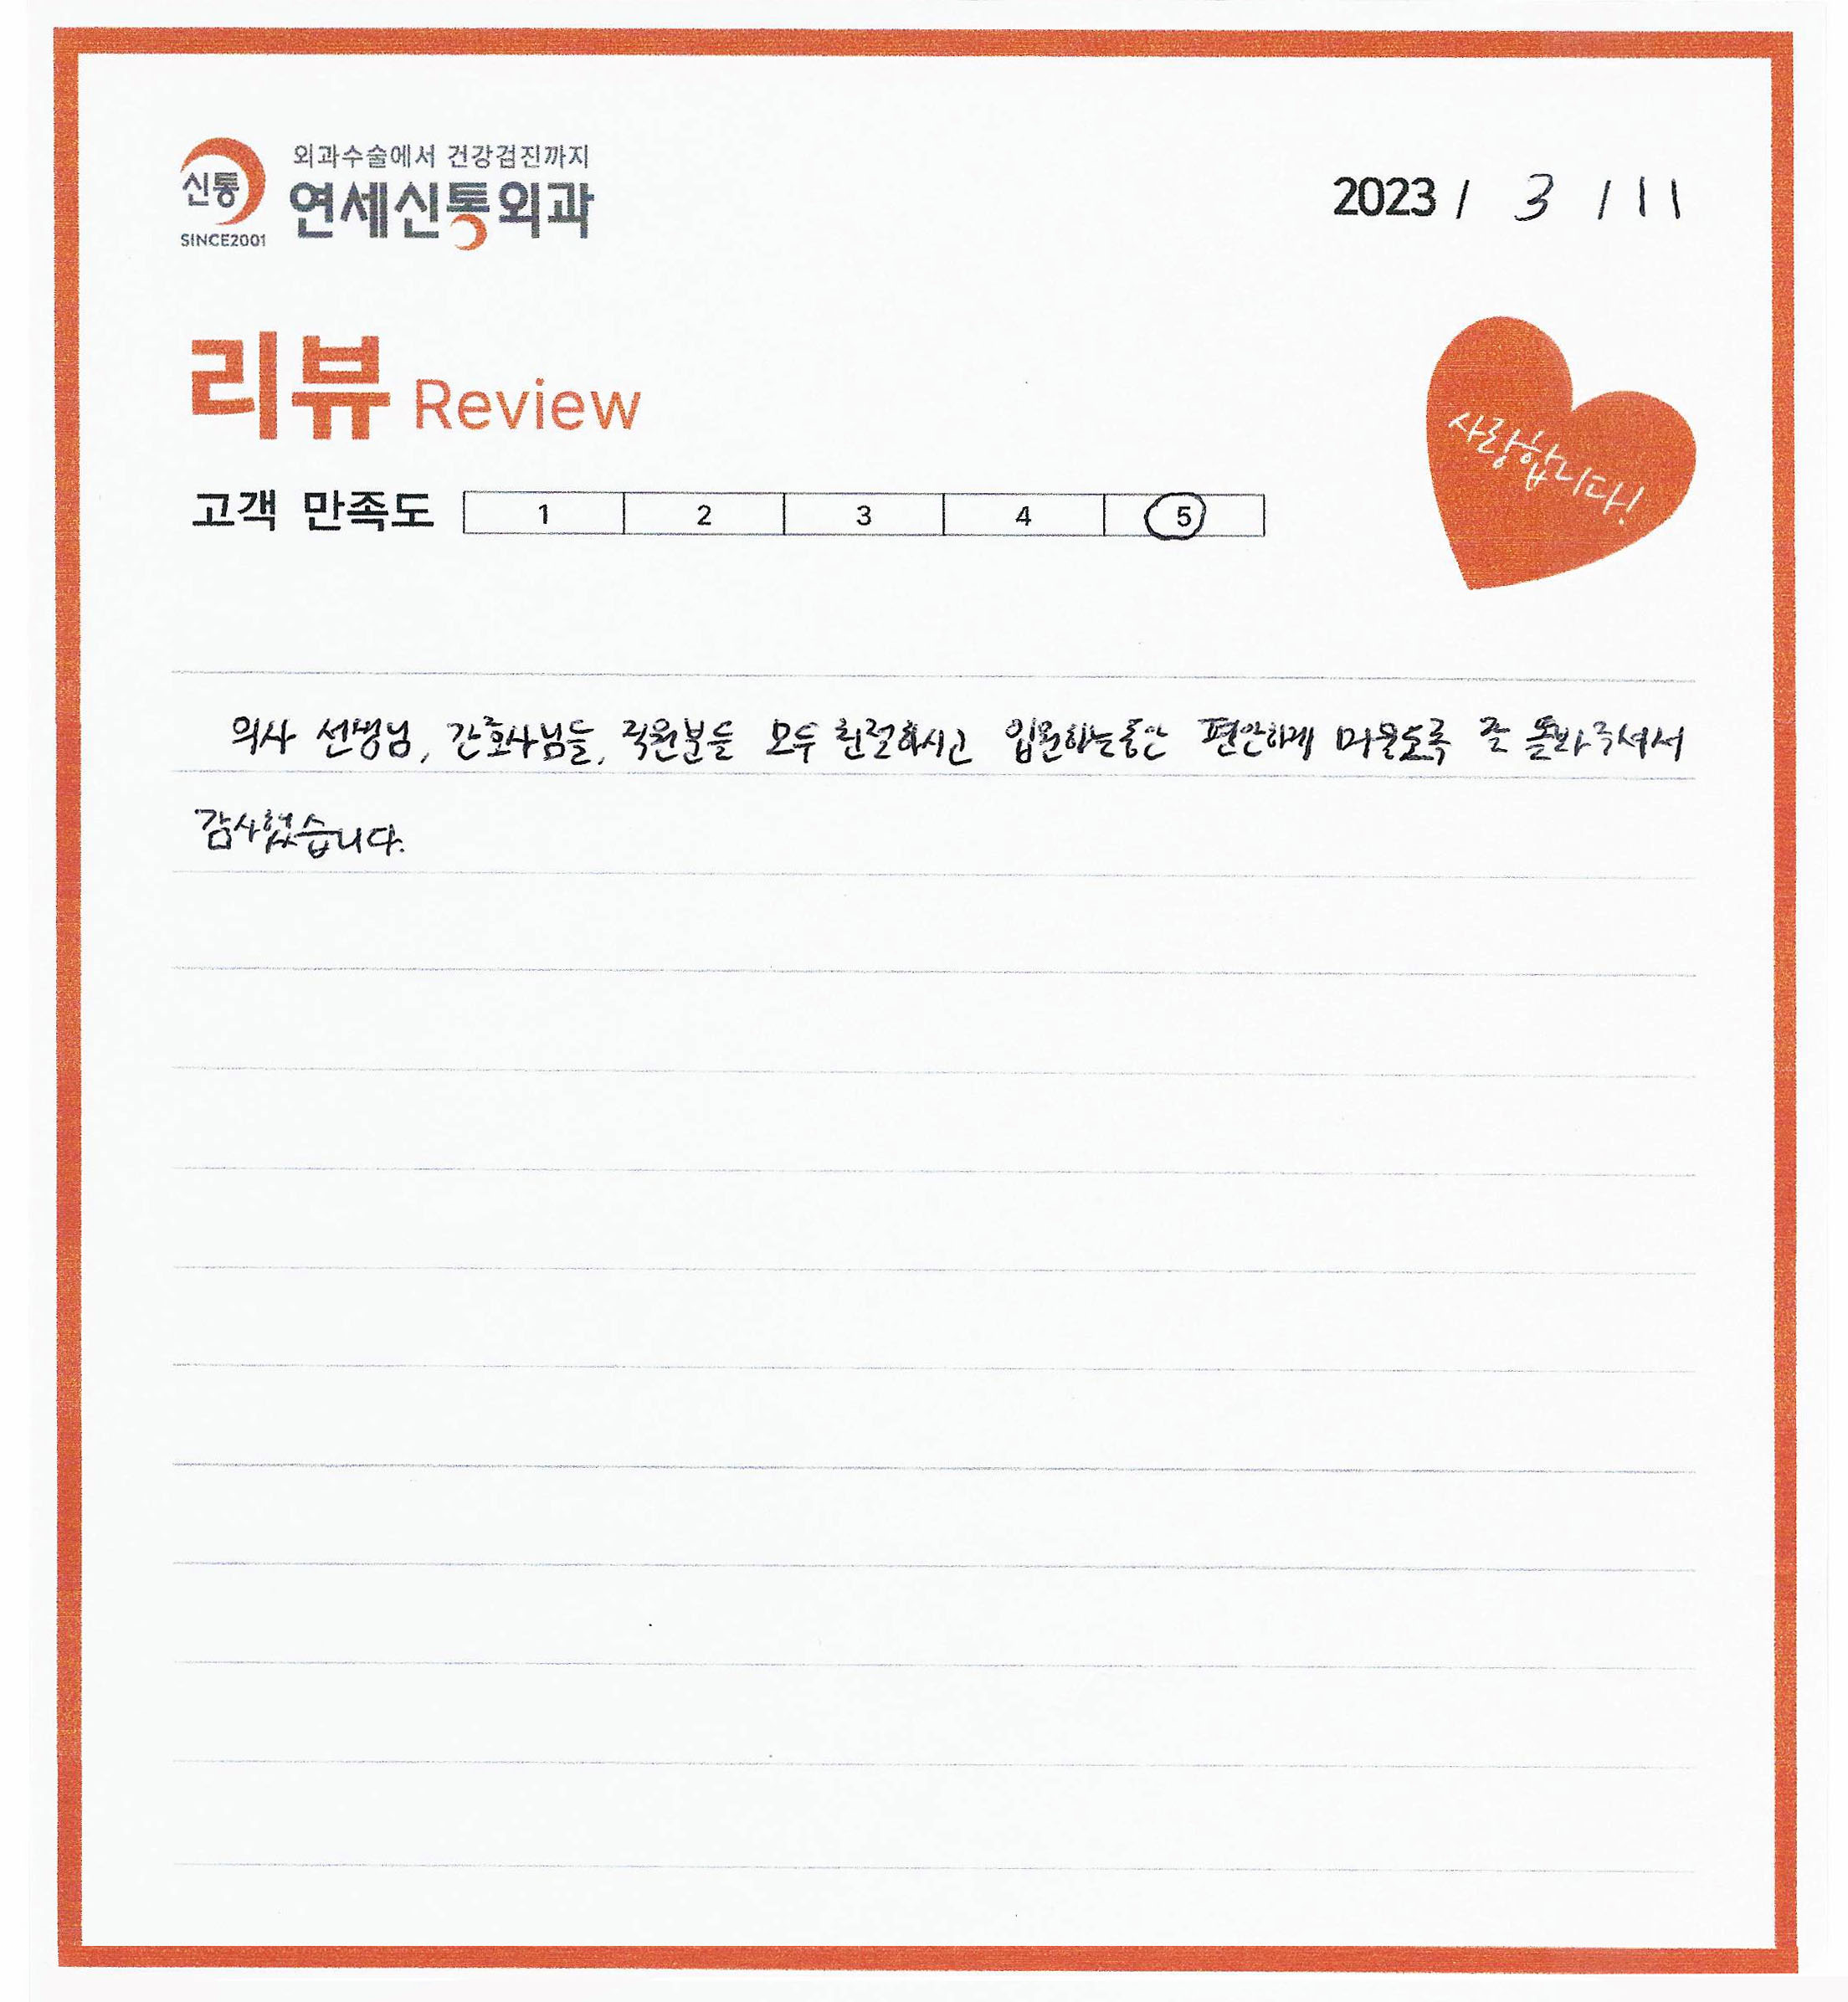 신통
SINCE2001
외과수술에서 건강검진까지
연세신통외과
2023 / 3 / 11
리뷰 Review
사랑합니다!
고객 만족도 1 2 3 4 5
의사 선생님, 간호사님들, 직원분들 모두 친절하시고 입원하는동안 편안하게 머물도록 잘 돌봐주셔서
감사했습니다.